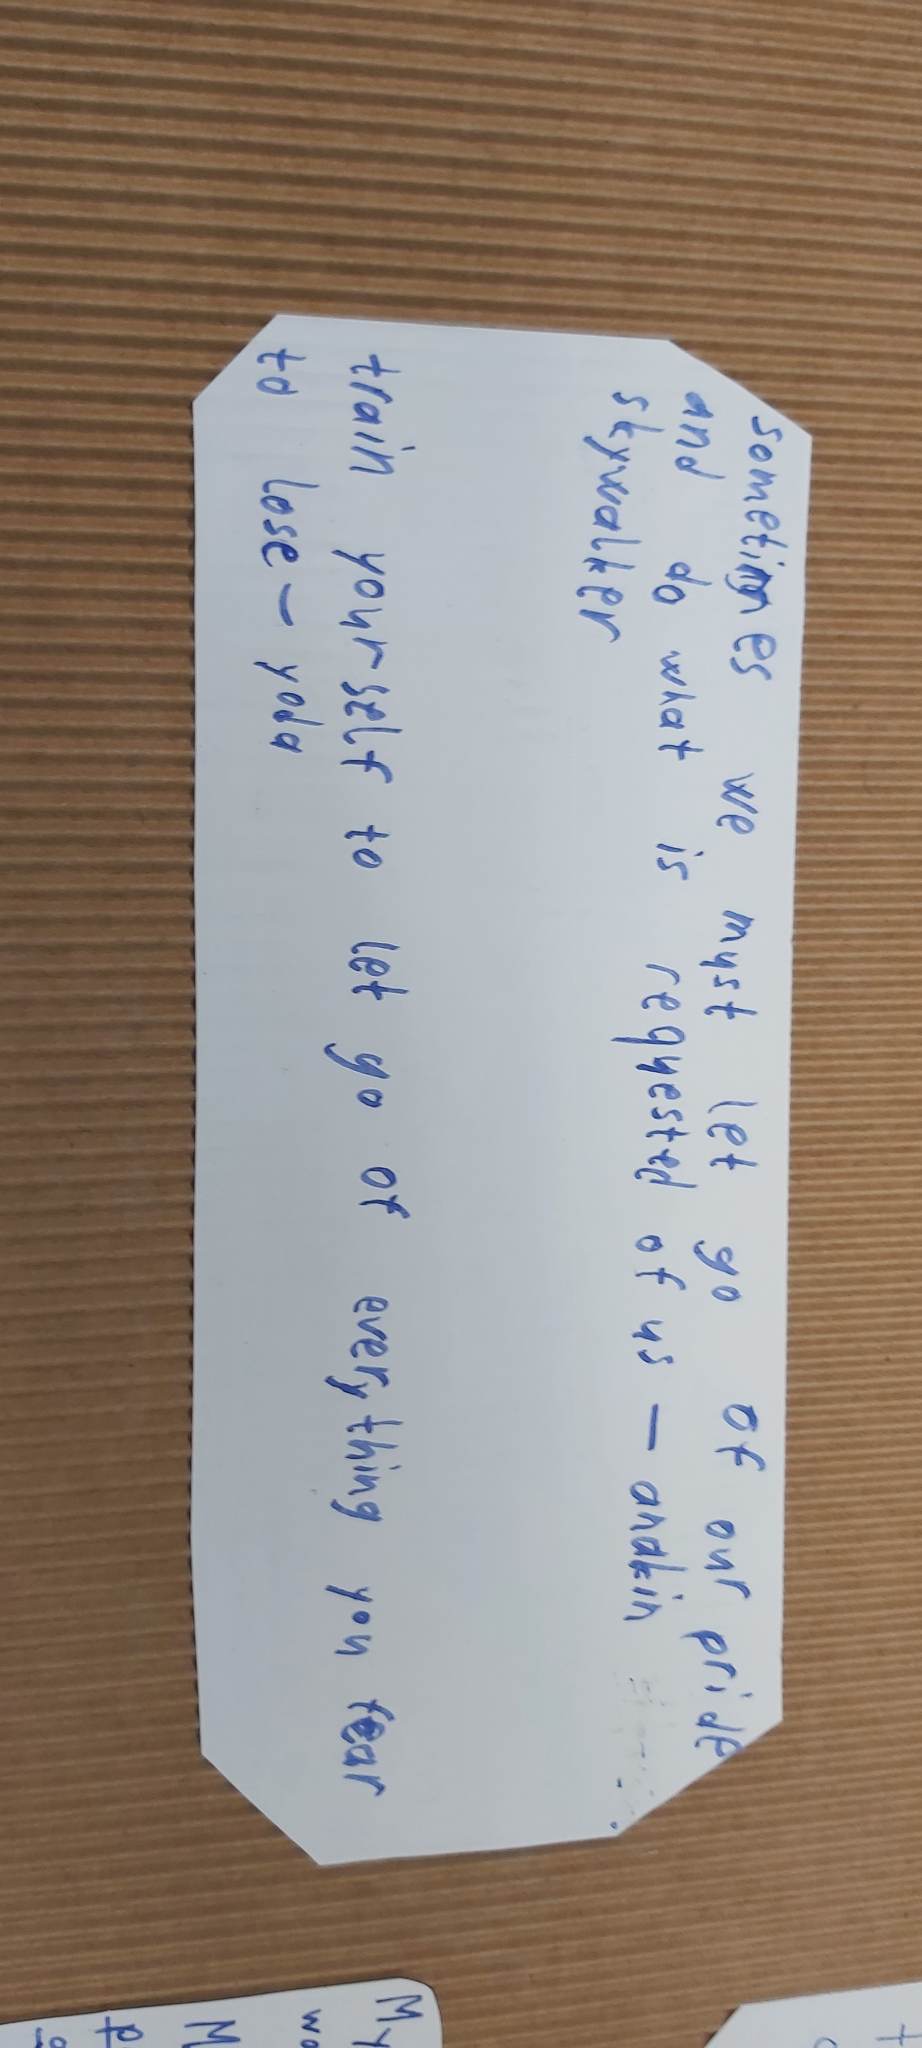 sometimes we must let go of our pride
and do what is requested of us — andkin
skywalker
train yourself to let go of everything you fear
to lose — yoda
My
wo
M